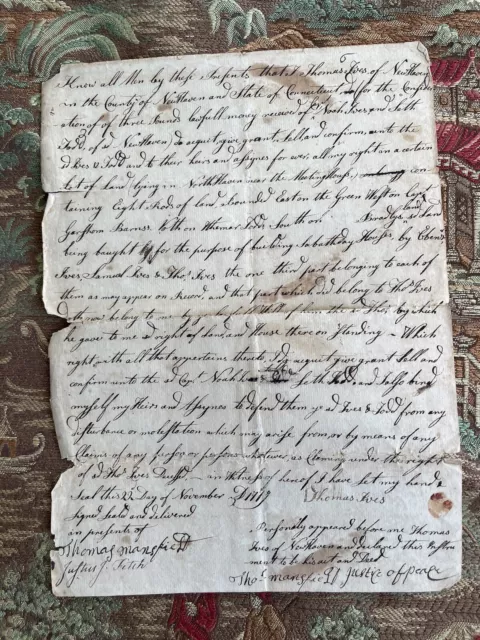 Know all Men by these Presents that I Thomas Ives of NewHaven
in the County of NewHaven and State of Connecticut for the Consider
ation of three Pound lawfull money received of Noah Ives and Seth
Todd of sd NewHaven Do acquit give grant sell and confirm unto the
sd Ives & Todd and to their heirs and assigns for ever all my right on a certain
lot of land lying in North Haven near the Meetinghouse con
taining Eight Rods of land bounded East on the Green West on
Barnes North on Todds South on sd land
being bought for the purpose of building Sabathday Houses by
Ives, Samuel Ives & Thos Ives the one third part belonging to each of
them as may appear on Record, and that part which did belong to Thos Ives
doth now belong to me by from the sd Thos by which
he gave to me sd right of land and House there on standing Which
right with all that appertains thereto I do acquit give grant sell and
confirm unto the sd Capt Noah Seth Todd and I also bind
myself my Heirs and Assigns to defend them ye sd Ives & Todd from any
Disturbance or molestation which may arise from or by means of any
Claims of any person or persons whatever as Claiming under the right
of sd Thos Ives Decesd in witness hereof I have set my hand &
Seal the 23 Day of November
Signed Seald and delivered Thomas Ives
in presents of
Thomas Mansfield
Fitch
Personaly appeared before me Thomas
Ives of NewHaven and declared this Instru
ment to be his act and Deed
Thos Mansfield Justice of peace